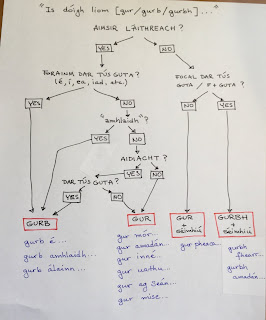 "Is dóigh liom [gur/gurb/gurbh]..."
AIMSIR LÁITHREACH?
YES
NO
FORAINM DAR TÚS GUTA?
(é, í, ea, iad, etc.)
FOCAL DAR TÚS
GUTA / F + GUTA?
YES
NO
YES
NO
"amhlaidh"?
YES
NO
AIDIACHT?
YES
NO
DAR TÚS GUTA?
YES
NO
GURB
GUR
GUR
+
séimhiú
GURBH
+
séimhiú
gurb é...
gurb amhlaidh...
gurb álainn...
gur mór...
gur amadán...
gur inné...
gur uathu...
gur ag Seán...
gur mise...
gur
gurbh
fhearr...
gurbh
amadán...